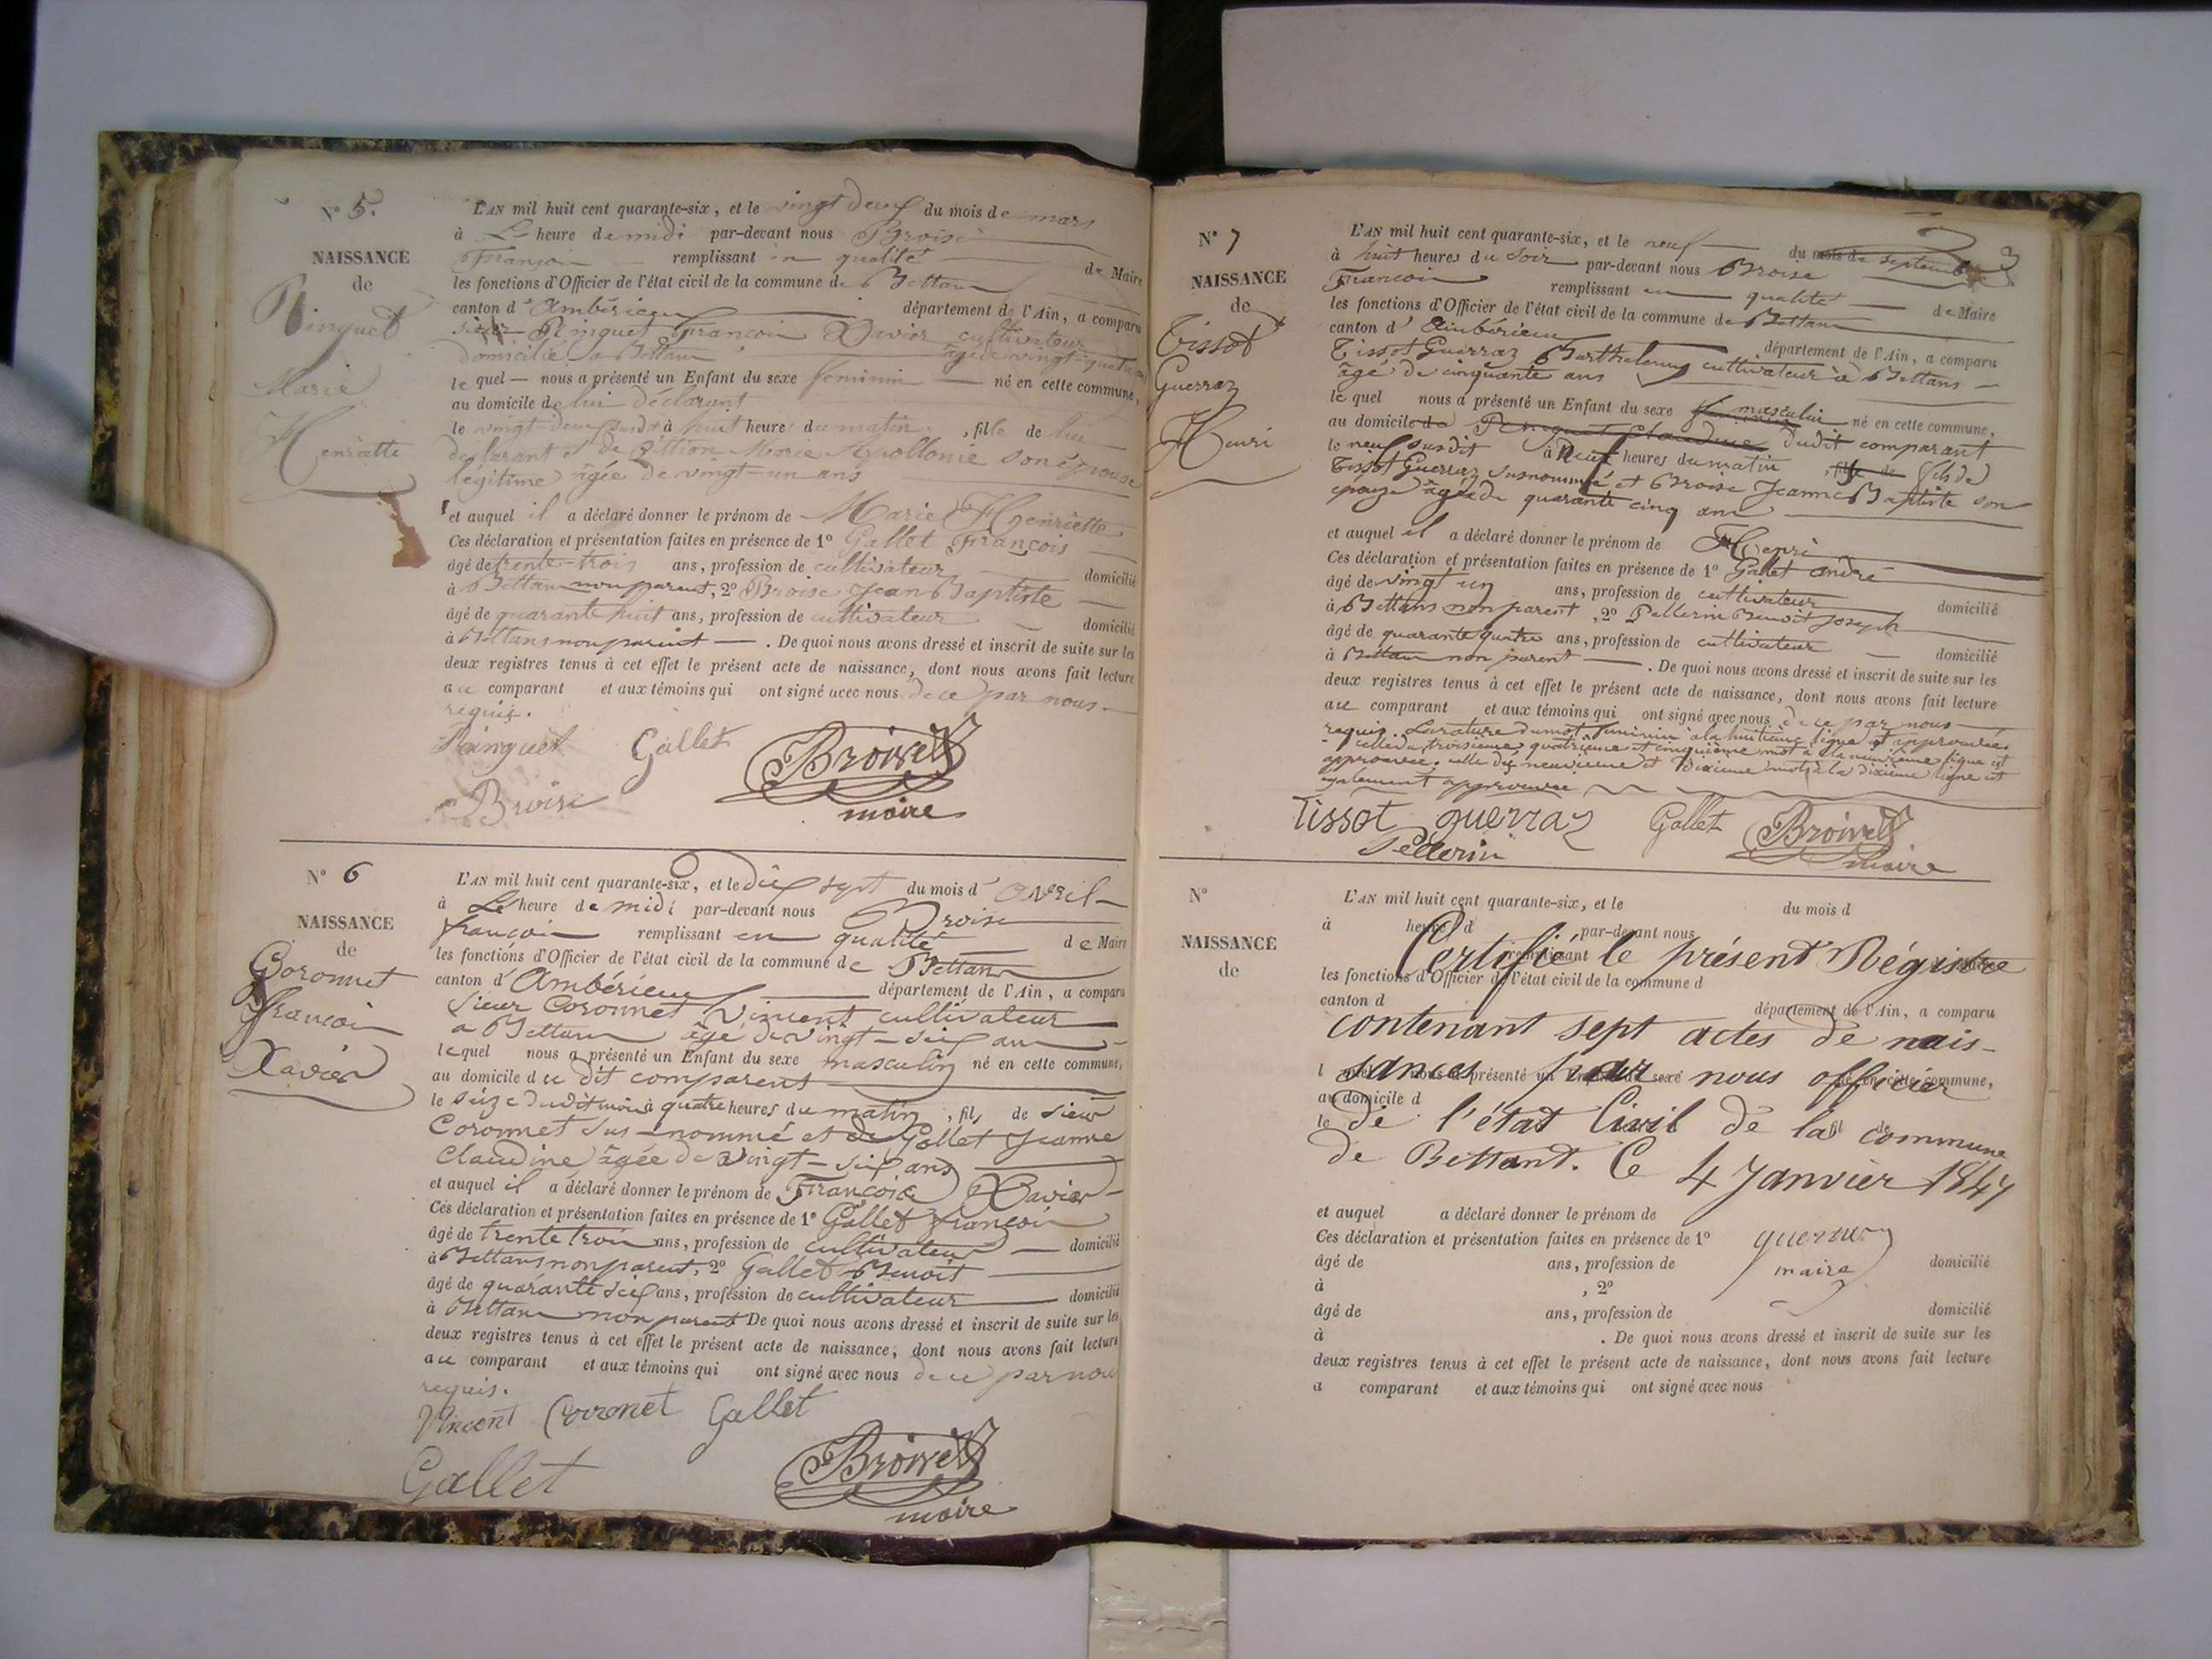 N° 5.
NAISSANCE
de
Pinguet
Marie
Henriette
L'AN mil huit cent quarante-six, et le vingt deux du mois de mars
à L heure de midi par-devant nous Broise
François remplissant en qualité de Maire
les fonctions d'Officier de l'état civil de la commune de Bettans
canton d'Ambérieu département de l'Ain, a comparu
sieur Pinguet François Xavier cultivateur
domicilié à Bettans âgé de vingt-quatre
le quel nous a présenté un Enfant du sexe féminin né en cette commune,
au domicile de lui déclarant
le vingt-deux susdit à huit heures du matin, fille de lui
déclarant et de Marie Apollonie son épouse
légitime âgée de vingt-un ans
et auquel il a déclaré donner le prénom de Marie Henriette
Ces déclaration et présentation faites en présence de 1° Gallet François
âgé de trente-trois ans, profession de cultivateur domicilié
à Bettans non parent, 2° Broise Jean Baptiste
âgé de quarante huit ans, profession de cultivateur domicilié
à Bettans non parent. De quoi nous avons dressé et inscrit de suite sur les
deux registres tenus à cet effet le présent acte de naissance, dont nous avons fait lecture
au comparant et aux témoins qui ont signé avec nous de ce par nous
requis.
Pinguet Gallet Broise
Broise maire
N° 6
NAISSANCE
de
Coronnet
François
Xavier
L'AN mil huit cent quarante-six, et le dix sept du mois d'avril
à L heure de midi par-devant nous Broise
françois remplissant en qualité de Maire
les fonctions d'Officier de l'état civil de la commune de Bettans
canton d'Ambérieu département de l'Ain, a comparu
sieur Coronnet Vincent cultivateur
a Bettans âgé de vingt-six ans
lequel nous a présenté un Enfant du sexe masculin né en cette commune,
au domicile du dit comparent
le seize dudit mois à quatre heures du matin, fils de sieur
Coronnet sus-nommé et de Gallet Jeanne
Claudine âgée de vingt-six ans
et auquel il a déclaré donner le prénom de François Xavier
Ces déclaration et présentation faites en présence de 1° Gallet françois
âgé de trente trois ans, profession de cultivateur domicilié
à Bettans non parent, 2° Gallet Benoit
âgé de quarante six ans, profession de cultivateur domicilié
à Bettans non parent De quoi nous avons dressé et inscrit de suite sur les
deux registres tenus à cet effet le présent acte de naissance, dont nous avons fait lecture
au comparant et aux témoins qui ont signé avec nous de ce par nou
requis.
Vincent Coronet Gallet
Gallet Broise
maire
3
N° 7
NAISSANCE
de
Tissot
Guerraz
Henri
L'AN mil huit cent quarante-six, et le neuf du mois de septembre
à huit heures du soir par-devant nous Broise
Francois remplissant en qualité de Maire
les fonctions d'Officier de l'état civil de la commune de Bettans
canton d'Ambérieu département de l'Ain, a comparu
Tissot Guerraz Barthelemy cultivateur à Bettans
âgé de cinquante ans
le quel nous a présenté un Enfant du sexe masculin né en cette commune,
au domicile dudit comparant
le neuf susdit à neuf heures du matin, fils de
Tissot Guerraz susnommé et Broise Jeanne Baptiste son
epouze âgée de quarante cinq ans
et auquel il a déclaré donner le prénom de Henri
Ces déclaration et présentation faites en présence de 1° Gallet André
âgé de vingt un ans, profession de cultivateur domicilié
à Bettans non parent, 2° Pellerin Benoit Joseph
âgé de quarante quatre ans, profession de cultivateur domicilié
à Bettans non parent. De quoi nous avons dressé et inscrit de suite sur les
deux registres tenus à cet effet le présent acte de naissance, dont nous avons fait lecture
au comparant et aux témoins qui ont signé avec nous de ce par nous
requis. La rature du mot féminin à la huitième ligne est approuvée
celle du troisieme quatrième et cinquième mot à la neuvième ligne est
approuvée. celle des neuvieme et dixième mots à la dixième ligne est
egalement approuvée
Tissot guerraz Gallet Broise
Pellerin maire
N°
NAISSANCE
de
L'AN mil huit cent quarante-six, et le du mois d
à heure d par-devant nous
Certifié le présent Régistre
les fonctions d'Officier de l'état civil de la commune d
canton d département de l'Ain, a comparu
contenant sept actes de nais-
sances par nous officier
l quel nous a présenté un Enfant du sexe né en cette commune,
au domicile d
de l'état Civil de la commune
de Bettant. Ce 4 Janvier 1847
et auquel a déclaré donner le prénom de
Ces déclaration et présentation faites en présence de 1°
âgé de ans, profession de maire domicilié
à , 2°
âgé de ans, profession de domicilié
à . De quoi nous avons dressé et inscrit de suite sur les
deux registres tenus à cet effet le présent acte de naissance, dont nous avons fait lecture
a comparant et aux témoins qui ont signé avec nous